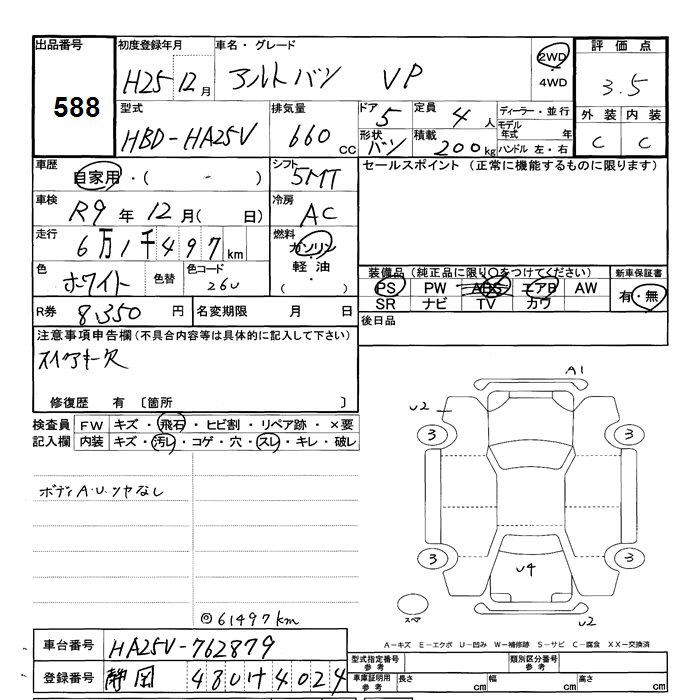 出品番号 初度登録年月 車名・グレード 評価点
588 H25 12月 アルトバン VP 2WD 4WD 3.5
型式 排気量 ドア 定員 ディーラー・並行 外装 内装
HBD-HA25V 660cc 5 4人 モデル年式 年 C C
形状 積載 ハンドル 左・右
バン 200kg
車歴 自家用・( - ) シフト 5MT セールスポイント (正常に機能するものに限ります)
車検 R9年 12月( 日) 冷房 AC
走行 6万1千497km 燃料 ガソリン
軽油・( )
色 ホワイト 色替 色コード 26U
装備品 (純正品に限り○をつけてください) 新車保証書
PS PW ABS エアB AW 有・無
SR ナビ TV カワ
R券 8,350円 名変期限 月 日 後日品
注意事項申告欄(不具合内容等は具体的に記入して下さい)
スペアキー欠
修復歴 有 〔箇所 〕
検査員 FW キズ・飛石・ヒビ割・リペア跡・×要
記入欄 内装 キズ・汚レ・コゲ・穴・スレ・キレ・破レ
ボディA.U.ツヤなし
A1
U2
3 3
3 3
U4
スペア
U2
◎61497km
A-キズ E-エクボ U-凹み W-補修跡 S-サビ C-腐食 XX-交換済
車台番号 HA25V-762879
型式指定番号 参考 類別区分番号 参考
登録番号 静岡 480 け 4024
車庫証明用 参考 長さ cm 幅 cm 高さ cm